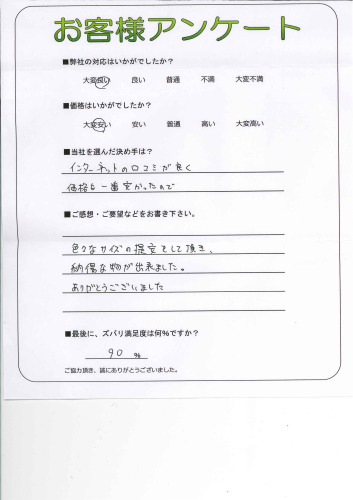 お客様アンケート
■弊社の対応はいかがでしたか？
大変良い 良い 普通 不満 大変不満
■価格はいかがでしたか？
大変安い 安い 普通 高い 大変高い
■当社を選んだ決め手は？
インターネットの口コミが良く
価格も一番安かったので
■ご感想・ご要望などをお書き下さい。
色々なサイズの提案をして頂き、
納得な物が出来ました。
ありがとうございました
■最後に、ズバリ満足度は何％ですか？
90 %
ご協力頂き、誠にありがとうございました。